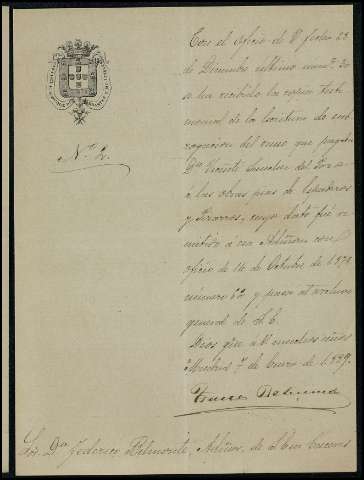 Con el oficio de V. fecha 22
de Diciembre ultimo num.º 30
se ha recibido la copia testi-
monial de la Escritura de sub
rogacion del censo que pagaba
Dn Vicente del
á las obras pias de
y Pizarros, cuyo dato fué re
mitido a esa Admon. con
oficio de 14 de Octubre de 1878
número 62 y pasa al archivo
general de S.E.
Dios gue á V. muchos años
Madrid 7 de Enero de 1879.
Nº 2.
Sor. Dn Federico Belmonte, Admor. de S.E. en